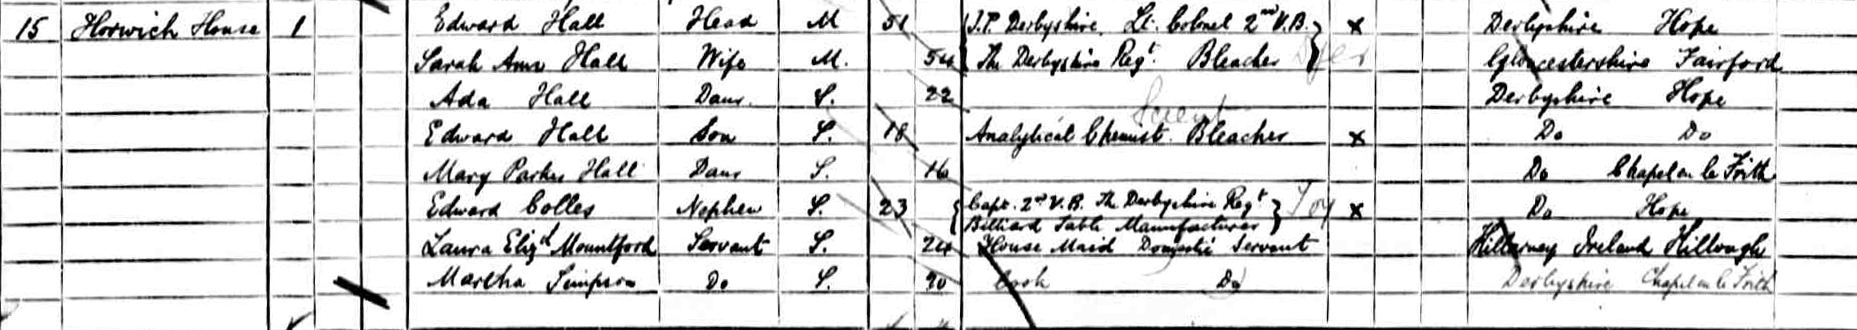 15 Horwich House 1 Edward Hall Head M 51 J.P. Derbyshire. Lt. Colonel 2nd V.B. x Derbyshire Hope
Sarah Ann Hall Wife M. 54 The Derbyshire Regt. Bleacher Dyer Gloucestershire Fairford
Ada Hall Daur. S. 22 Derbyshire Hope
Scient
Edward Hall Son S. 18 Analytical Chemist. Bleacher x Do Do
Mary Parker Hall Daur S. 16 Do Chapel en le Frith
Edward Colles Nephew S. 23 Capt. 2nd V.B. The Derbyshire Regt Toy x Do Hope
Billiard Table Manufacturer
Laura Elizth Mountford Servant S. 24 House Maid Domestic Servant Ireland
Martha Simpson Do S. Cook Do Derbyshire Chapel en le Frith